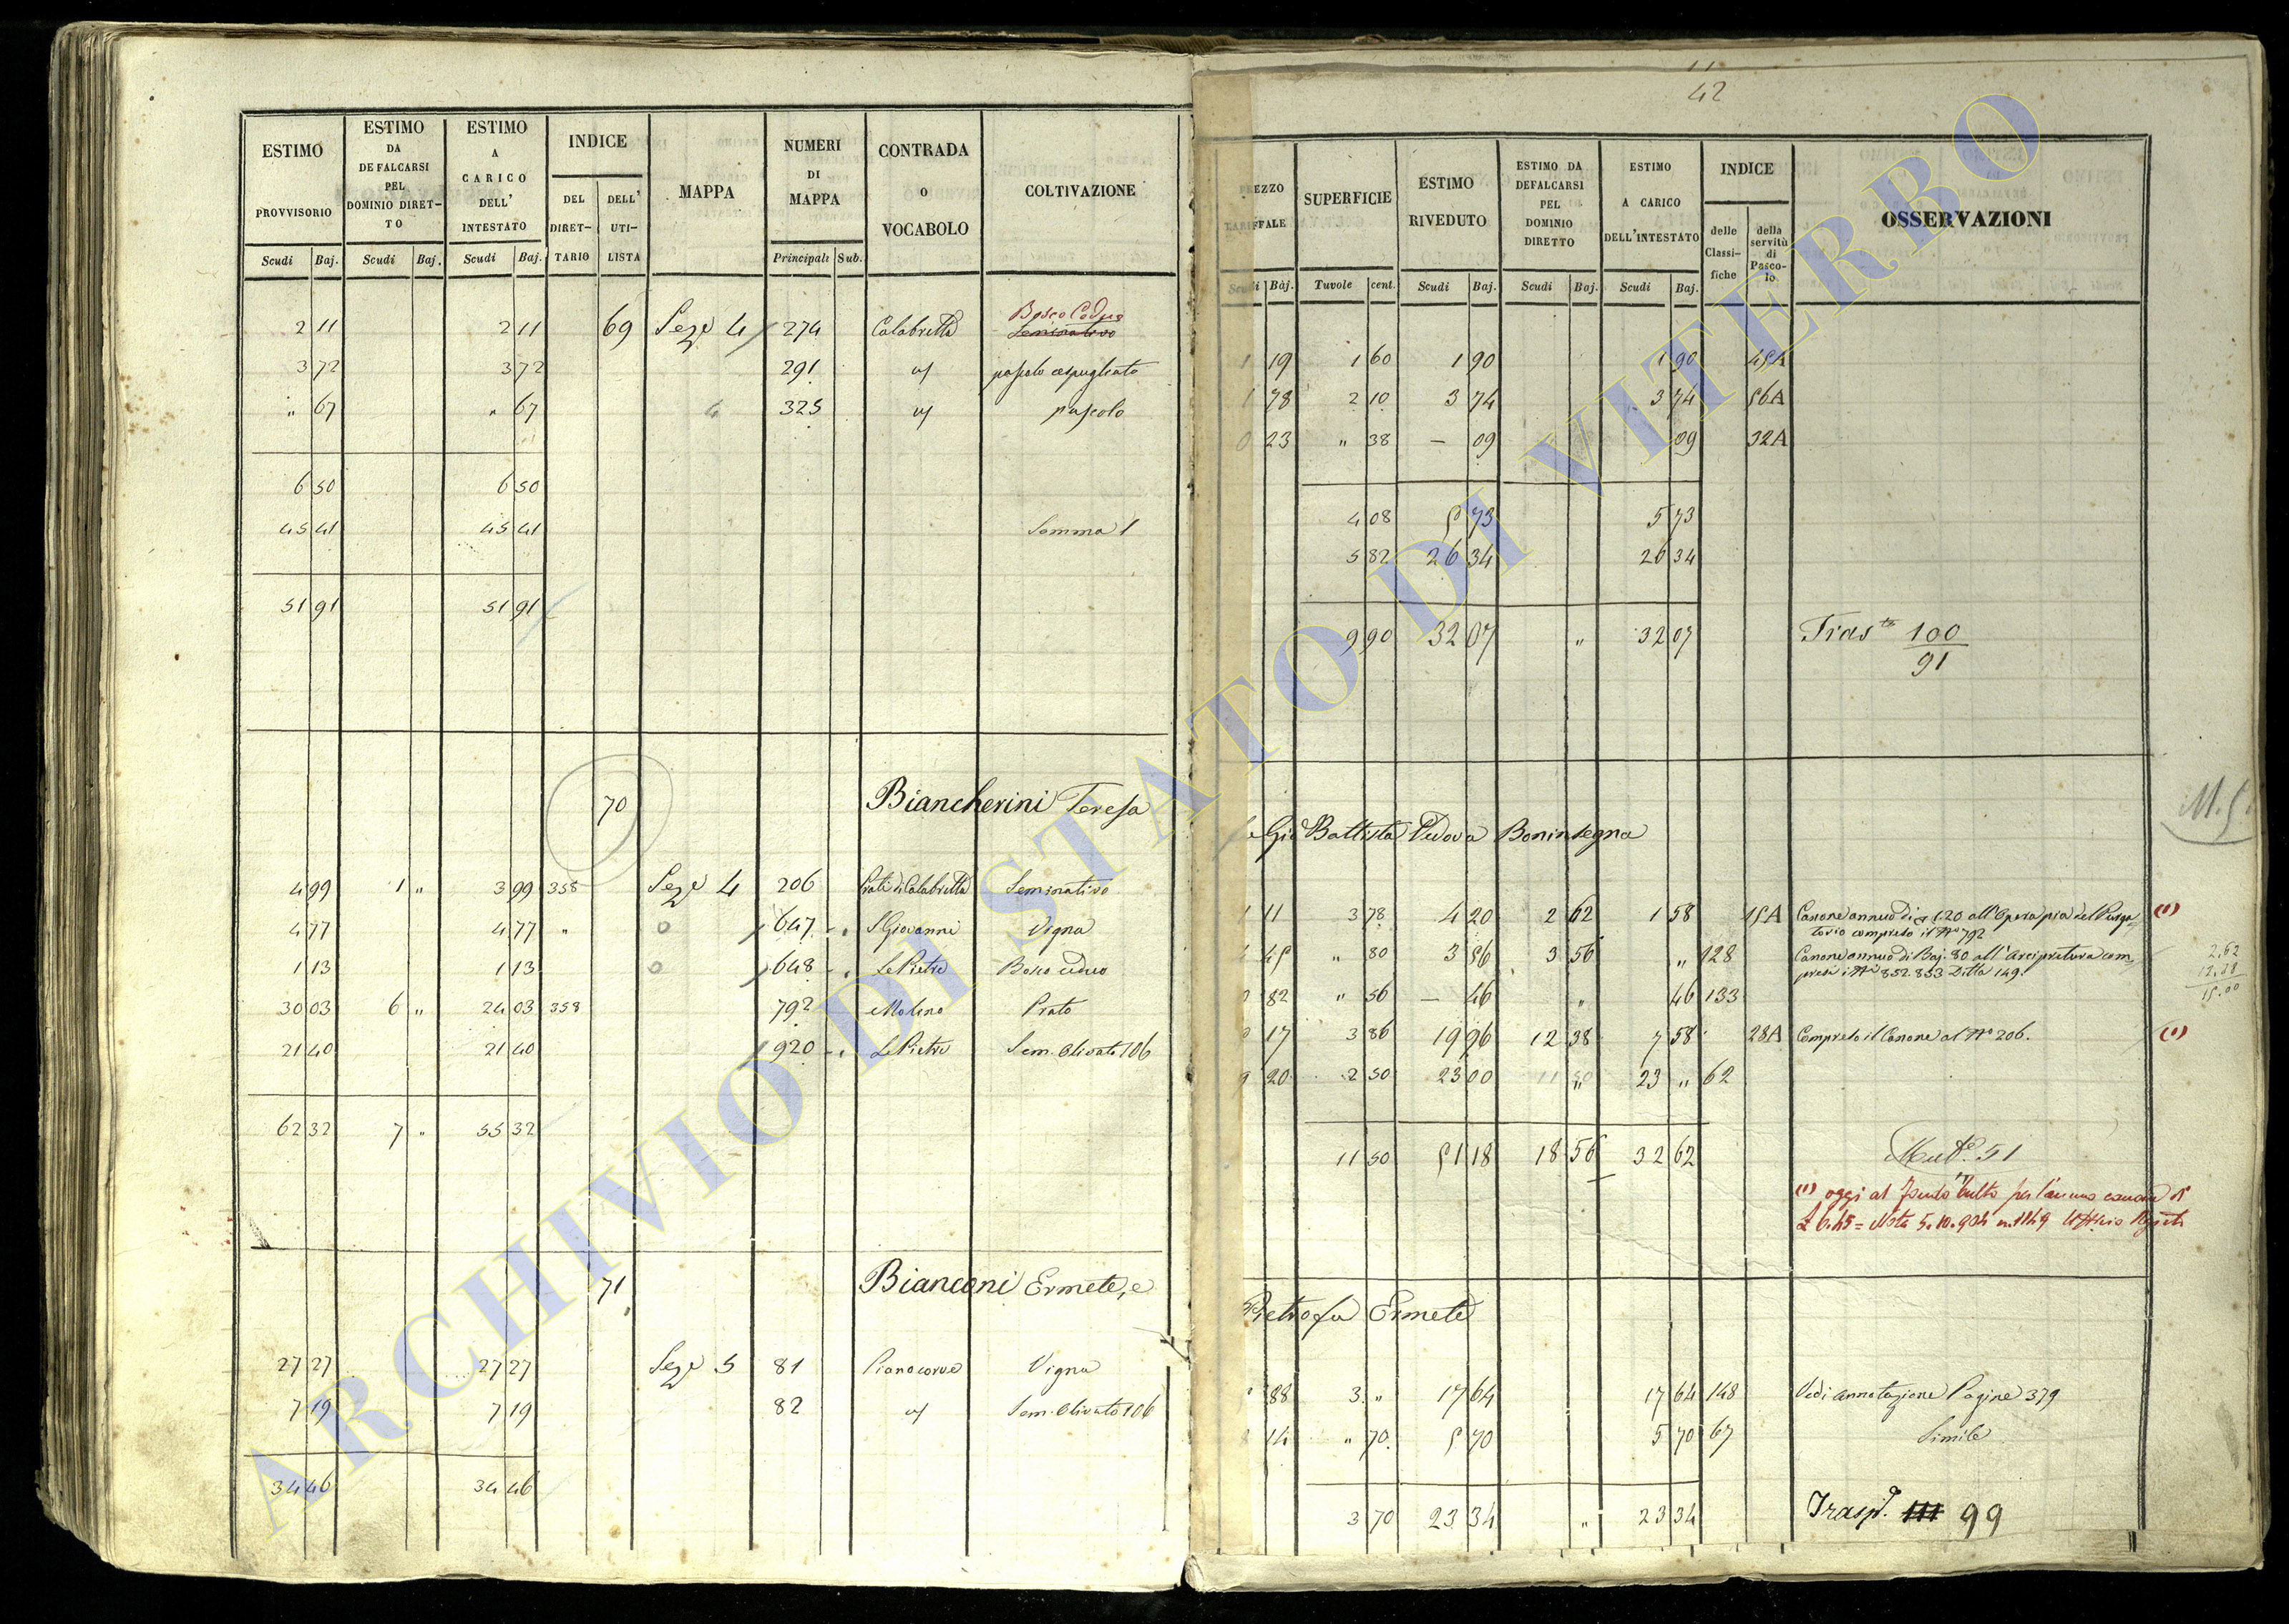 ESTIMO PROVVISORIO Scudi Baj.
ESTIMO DA DEFALCARSI PEL DOMINIO DIRETTO Scudi Baj.
ESTIMO A CARICO DELL' INTESTATO Scudi Baj.
INDICE DEL DIRETTARIO DELL' UTILISTA
MAPPA
NUMERI DI MAPPA Principali Sub.
CONTRADA O VOCABOLO
COLTIVAZIONE
Bosco Ceduo
2 11 2 11 69 Sez.e 4 274 Calabretta Seminativo
3 72 3 72 291 pascolo cespugliato
" 67 " 67 325 pascolo
6 50 6 50
45 41 45 41 Somma 1
51 91 51 91
70 Biancherini Teresa
4 99 1 " 3 99 358 Sez.e 4 206 Prati di Calabretta Seminativo
4 77 4 77 " 647 S Giovanni Vigna
1 13 1 13 648 Le Pietre Bosco ceduo
30 03 6 " 24 03 358 792 Molino Prato
21 40 21 40 920 Le Pietre Sem. Olivato 106
62 32 7 " 55 32
71 Bianconi Ermete, e
27 27 27 27 Sez.e 5 81 Vigna
7 19 7 19 82 Sem. Olivato 106
34 46 34 46
42
PREZZO TARIFFALE Scudi Baj.
SUPERFICIE Tuvole cent.
ESTIMO RIVEDUTO Scudi Baj.
ESTIMO DA DEFALCARSI PEL DOMINIO DIRETTO Scudi Baj.
ESTIMO A CARICO DELL'INTESTATO Scudi Baj.
INDICE delle Classifiche della servitù di Pascolo
OSSERVAZIONI
1 19 1 60 1 90 1 90 45A
1 78 2 10 3 74 3 74 56A
0 23 " 38 — 09 09 32A
4 08 5 73 5 73
5 82 26 34 26 34
9 90 32 07 " 32 07 Tras.to 100
91
fu Gio Battista Vedova Boninsegna
11 3 78 4 20 2 62 1 58 15A Canone annuo di 1.20 all'Opera pia del Purga- (1)
torio compreso il N.o 792
45 " 80 3 56 3 56 " 128 Canone annuo di Baj. 80 all'Arcipretura com-
presi i N.i 852.853 Ditta 149.
2.62
12.38
15.00
82 " 56 — 46 " 46 133
17 3 86 19 96 12 38 7 58 28A Compreso il Canone al N.o 206. (1)
9 20 2 50 23 00 " 23 " 62
11 50 51 18 18 56 32 62 Mut.e 51
(1) oggi al Fondo Culto per l'annuo canone di
£ 6.45 = Nota 5.10.904 n.1149 Ufficio Regist.
Pietro fu Ermete
88 3 " 17 64 17 64 148 Vedi annotazione Pagine 379
14 " 70 5 70 5 70 67 Simile
3 70 23 34 " 23 34 Trasp.o 111 99
ARCHIVIO DI STATO DI VITERBO